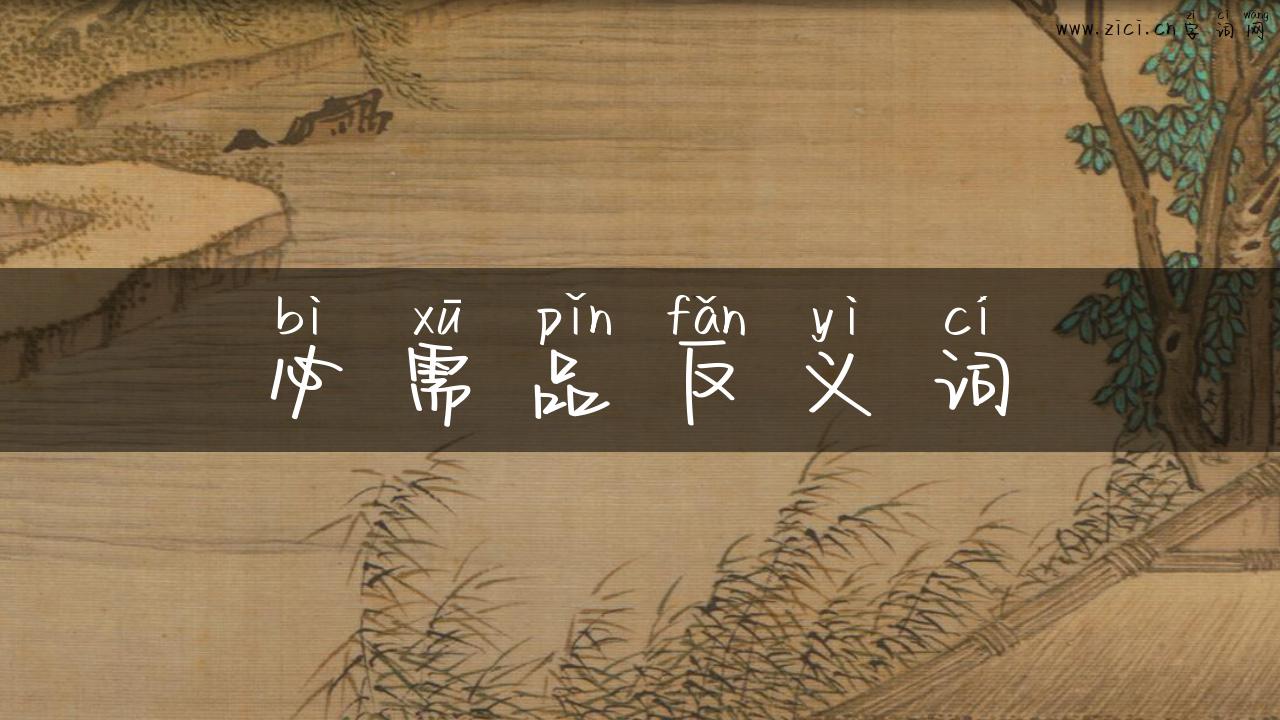 zì cí wǎng
www.zici.cn字词网
bì xū pǐn fǎn yì cí
必需品反义词